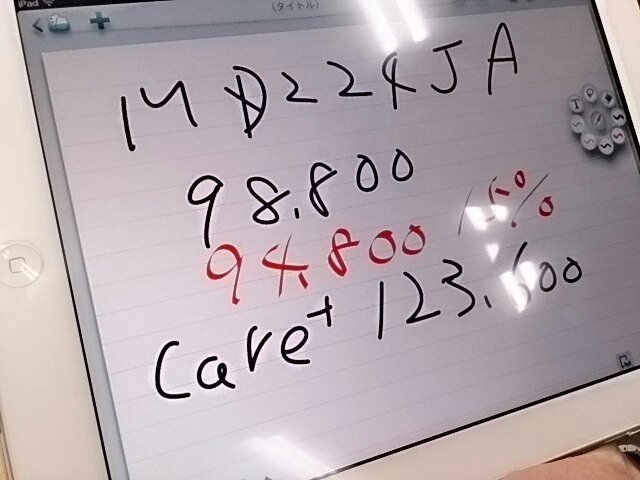 iPad
(タイトル)
MD224JA
98.800
94.800 15%
Care+ 123.600